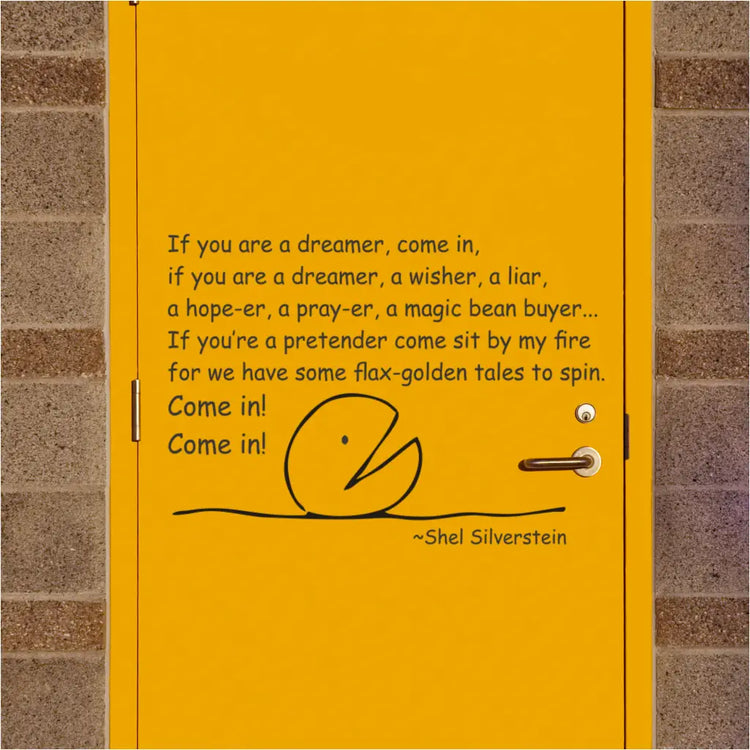 If you are a dreamer, come in,
if you are a dreamer, a wisher, a liar,
a hope-er, a pray-er, a magic bean buyer...
If you're a pretender come sit by my fire
for we have some flax-golden tales to spin.
Come in!
Come in!
~Shel Silverstein